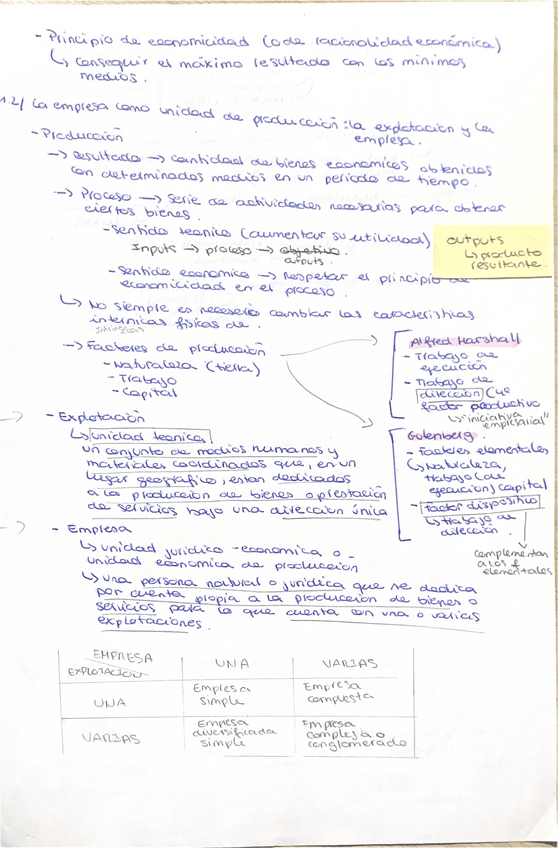 - Principio de economicidad (o de racionalidad económica)
↳ conseguir el máximo resultado con los mínimos
medios.
1.2/ La empresa como unidad de producción: la explotación y la
empresa.
- Producción
→ Resultado → cantidad de bienes económicos obtenidos
con determinados medios en un período de tiempo.
→ Proceso → Serie de actividades necesarias para obtener
ciertos bienes.
- Sentido técnico (aumentar su utilidad)
Inputs → proceso → objetivo.
outputs.
outputs
↳ producto
resultante.
- Sentido económico → Respetar el principio de
economicidad en el proceso.
↳ No siempre es necesario cambiar las características
intérnicas físicas de.
intrínsecas
→ Factores de producción
- Naturaleza (tierra)
- Trabajo
- Capital
Alfred Marshall
- Trabajo de
ejecución
- Trabajo de
dirección (4º
factor productivo
↳ "iniciativa
empresarial"
→ - Explotación
↳ unidad técnica
un conjunto de medios humanos y
materiales coordinados que, en un
lugar geográfico, están dedicados
a la producción de bienes o prestación
de servicios bajo una dirección única
Gutenberg
- Factores elementales
↳ Naturaleza,
trabajo (de
ejecución) capital
- Factor dispositivo
↳ trabajo de
dirección.
complementan
a los f
elementales
→ - Empresa
↳ unidad jurídico-económica o -
unidad económica de producción
↳ una persona natural o jurídica que se dedica
por cuenta propia a la producción de bienes o
servicios para lo que cuenta con una o varias
explotaciones.
EMPRESA
EXPLOTACIÓN
UNA
VARIAS
UNA
Empresa
simple
Empresa
compuesta
VARIAS
Empresa
diversificada
simple
Empresa
compleja o
conglomerado